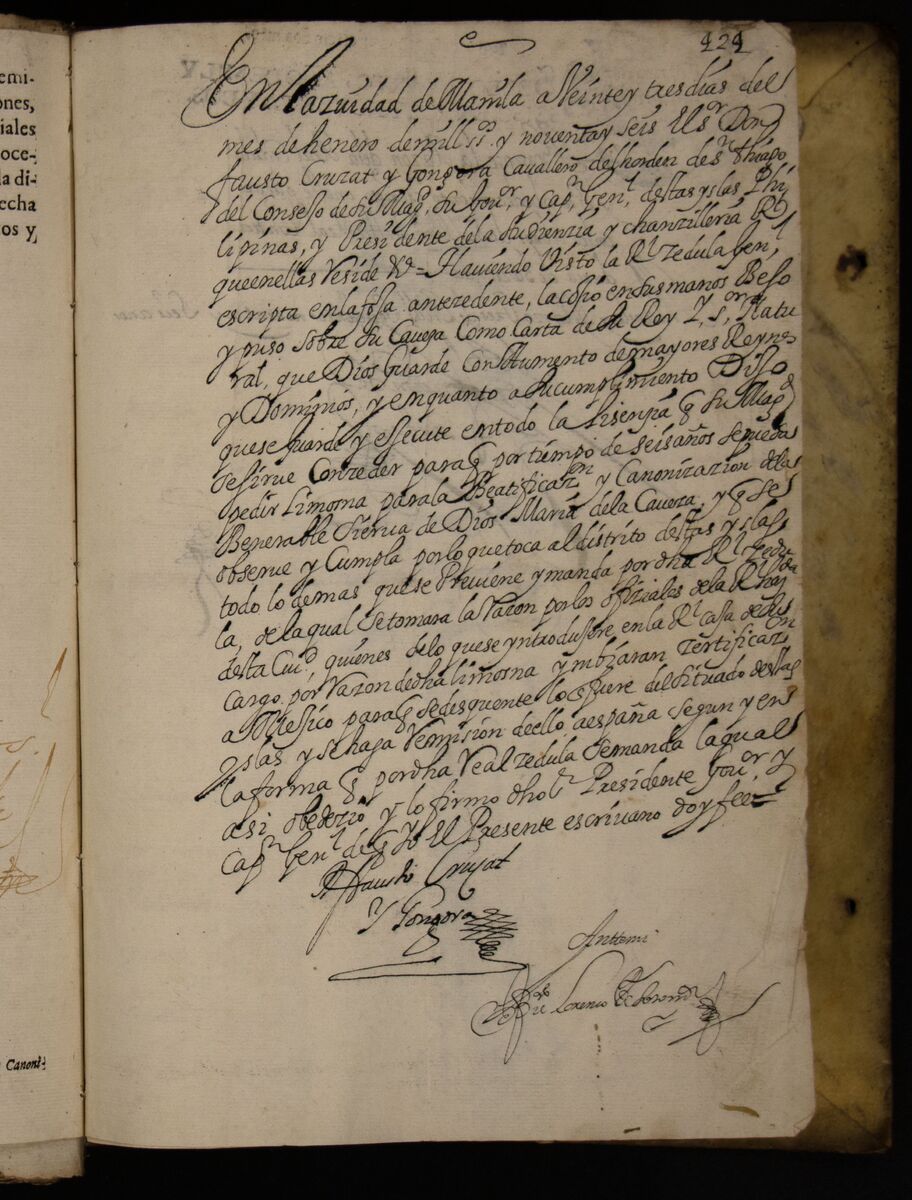 emi-
ones,
iales
oce-
la di-
echa
os y
Canoni-
424
En la zuidad de Manila a Veinte y tres dias del
mes de henero de mill ss.os y noventa y seis El Sr Don
fausto Cruzat y Gongora Cavallero del horden de Sr thiago
del Consejo de su Magd, su Gour, y Capn Genl destas yslas Phi
lipinas, y Presidente de la Audienzia y chanzilleria Rl
que en ellas Reside &a = Haviendo Visto la Rl zedula Genl
escripta en la foja antezedente, la cojio en sus manos Beso
y puso sobre su Caveza Como Carta de su Rey y sor Natu
ral, que Dios Guarde Con aumento de mayores Reynos
y Dominios, y en quanto a su cumplimiento Dijo
que se guarde y essecute en todo la Lisenzia q su Magd
se sirue Conzeder para q por tiempo de seis años se pueda
pedir Limosna para la Beatificazn y Canonizazion de la
Benerable Sierua de Dios Maria de la Caveza, y q se
observe y Cumpla por lo que toca al distrito destas yslas
todo lo demas que se Previene y manda por dha Rl zedu
la, de la qual se tomara la Razon por los ofiziales de la Rl hazda
desta Ciud, quienes de lo que se yntrodujere en la Rl caja de su
cargo por Razon de dha limosna ymbiaran zertificazon
a Mexico para q se desquente lo q fuere del situado destas
yslas y se haga Remision dello a españa segun y en
la forma q por dha Real zedula se manda la qual
asi obedezio y lo firmo dho Sr Presidente Gour y
Capn Genl de q Yo El Presente escriuano doy fee =
D fausto Cruzat
Y Gongora
Anttemi
Lorenco